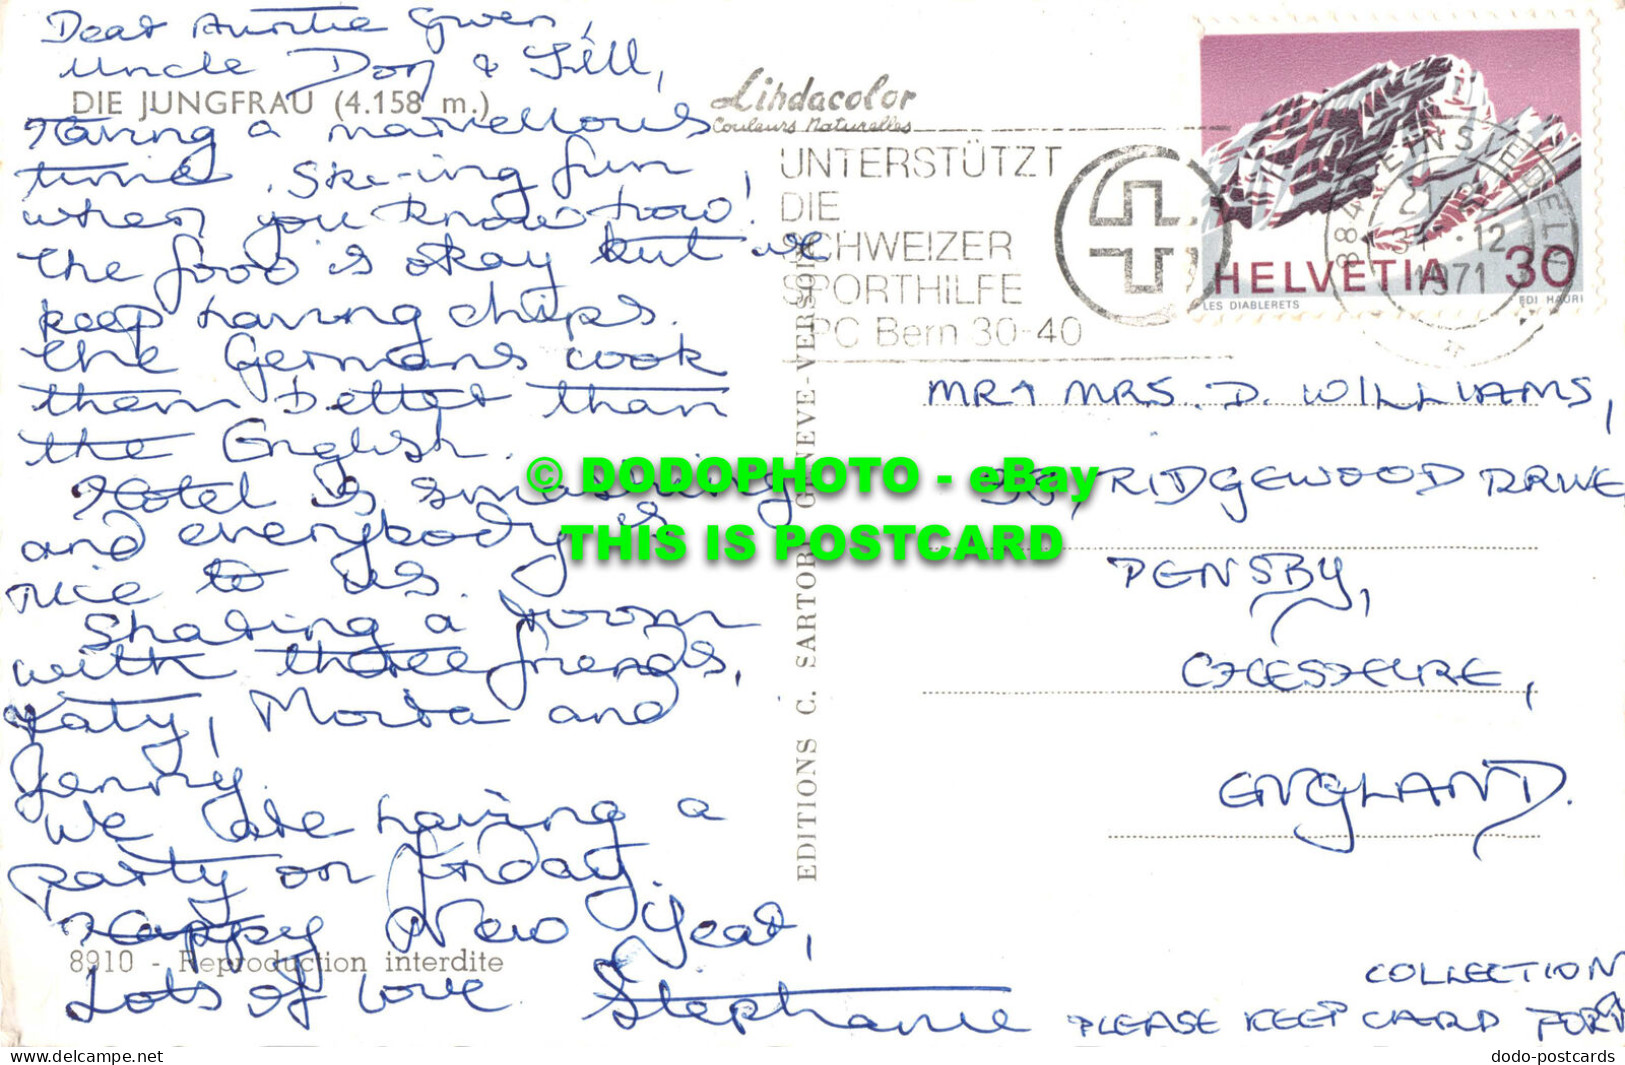 Dear Auntie Gwen,
Uncle Don & Jill,
DIE JUNGFRAU (4.158 m.)
Having a marvellous
time. Ski-ing fun,
when you know how!
the food is okay but we
keep having chips.
the Germans cook
them better than
the English.
Hotel is smashing
and everybody is
nice to us.
Sharing a room
with three friends,
Katy, Moira and
Jenny.
We are having a
party on Friday.
Happy New Year,
8910 - Reproduction interdite
Lots of love Stephanie
EDITIONS C. SARTORI GENÈVE-VERSOIX
Lindacolor
Couleurs Naturelles
UNTERSTÜTZT
DIE
SCHWEIZER
SPORTHILFE
PC Bern 30-40
8840 EINSIEDELN
1971
HELVETIA 30
LES DIABLERETS
EDI HAURI
MR & MRS. D. WILLIAMS,
RIDGEWOOD DRIVE
PENSBY,
CHESHIRE,
ENGLAND.
COLLECTION
PLEASE KEEP CARD FOR
© DODOPHOTO - eBay
THIS IS POSTCARD
www.delcampe.net
dodo-postcards